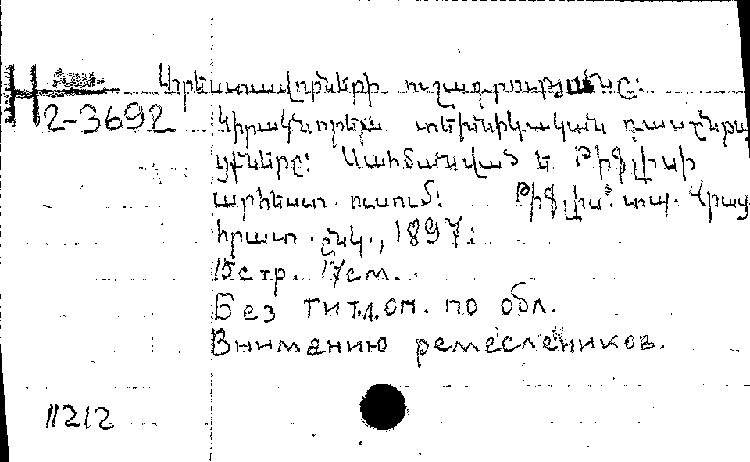 Արհեստավորների ուշադրությանը:
Н 2-3692
Կիրակնօրեայ տեխնիկական դասընթա
ցքները: Սահմանված է Թիֆլիսի
արհեստ. ուսում: Թիֆլիս: տպ. Վրաց
հրատ. ընկ., 1897:
15 стр. 17см.
Без титл. on. по обл.
Вниманию ремеслеников.
11212